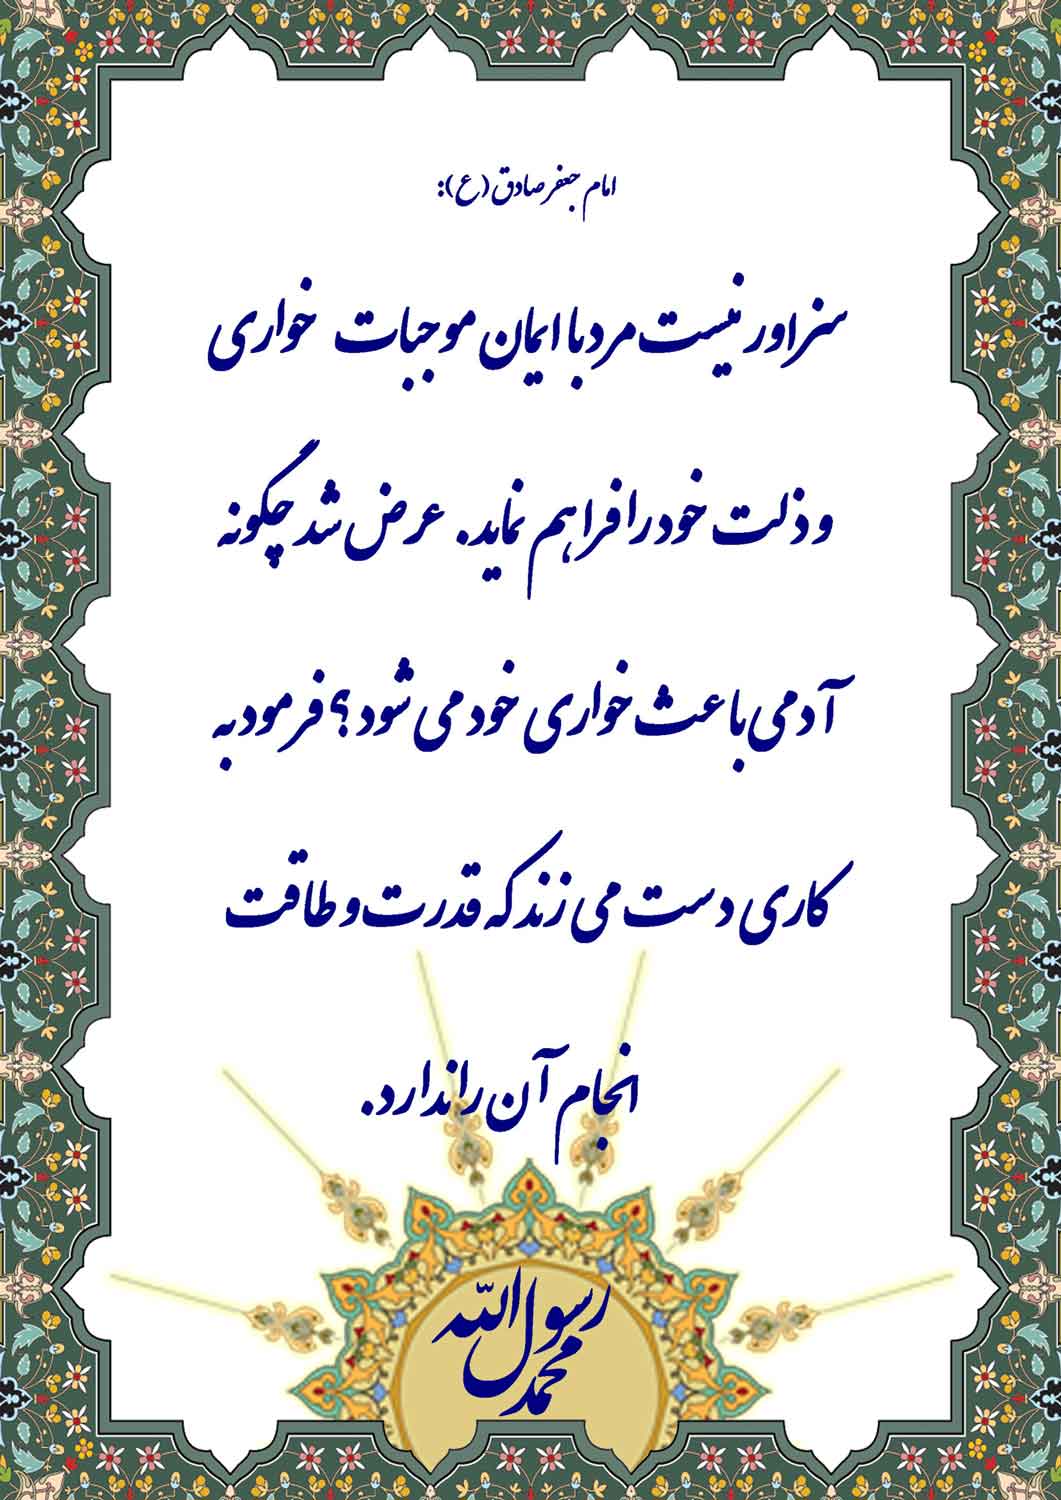 امام جعفر صادق (ع):
سزاور نیست مرد با ایمان موجبات خواری
و ذلت خود را فراهم نماید. عرض شد چگونه
آدمی باعث خواری خود می شود؟ فرمود به
کاری دست می زند که قدرت و طاقت
انجام آن را ندارد.
محمد رسول الله